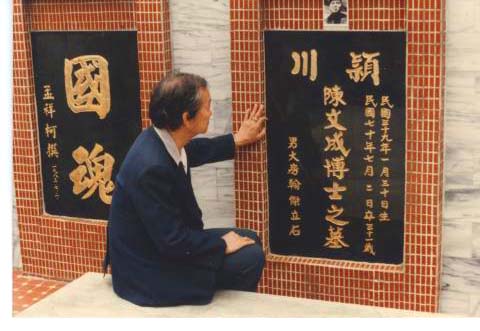 潁川
民國三十九年一月三十日生
民國七十年七月二日卒三十一歲
陳文成博士之墓
男大房翰傑立石
國魂
孟祥柯撰